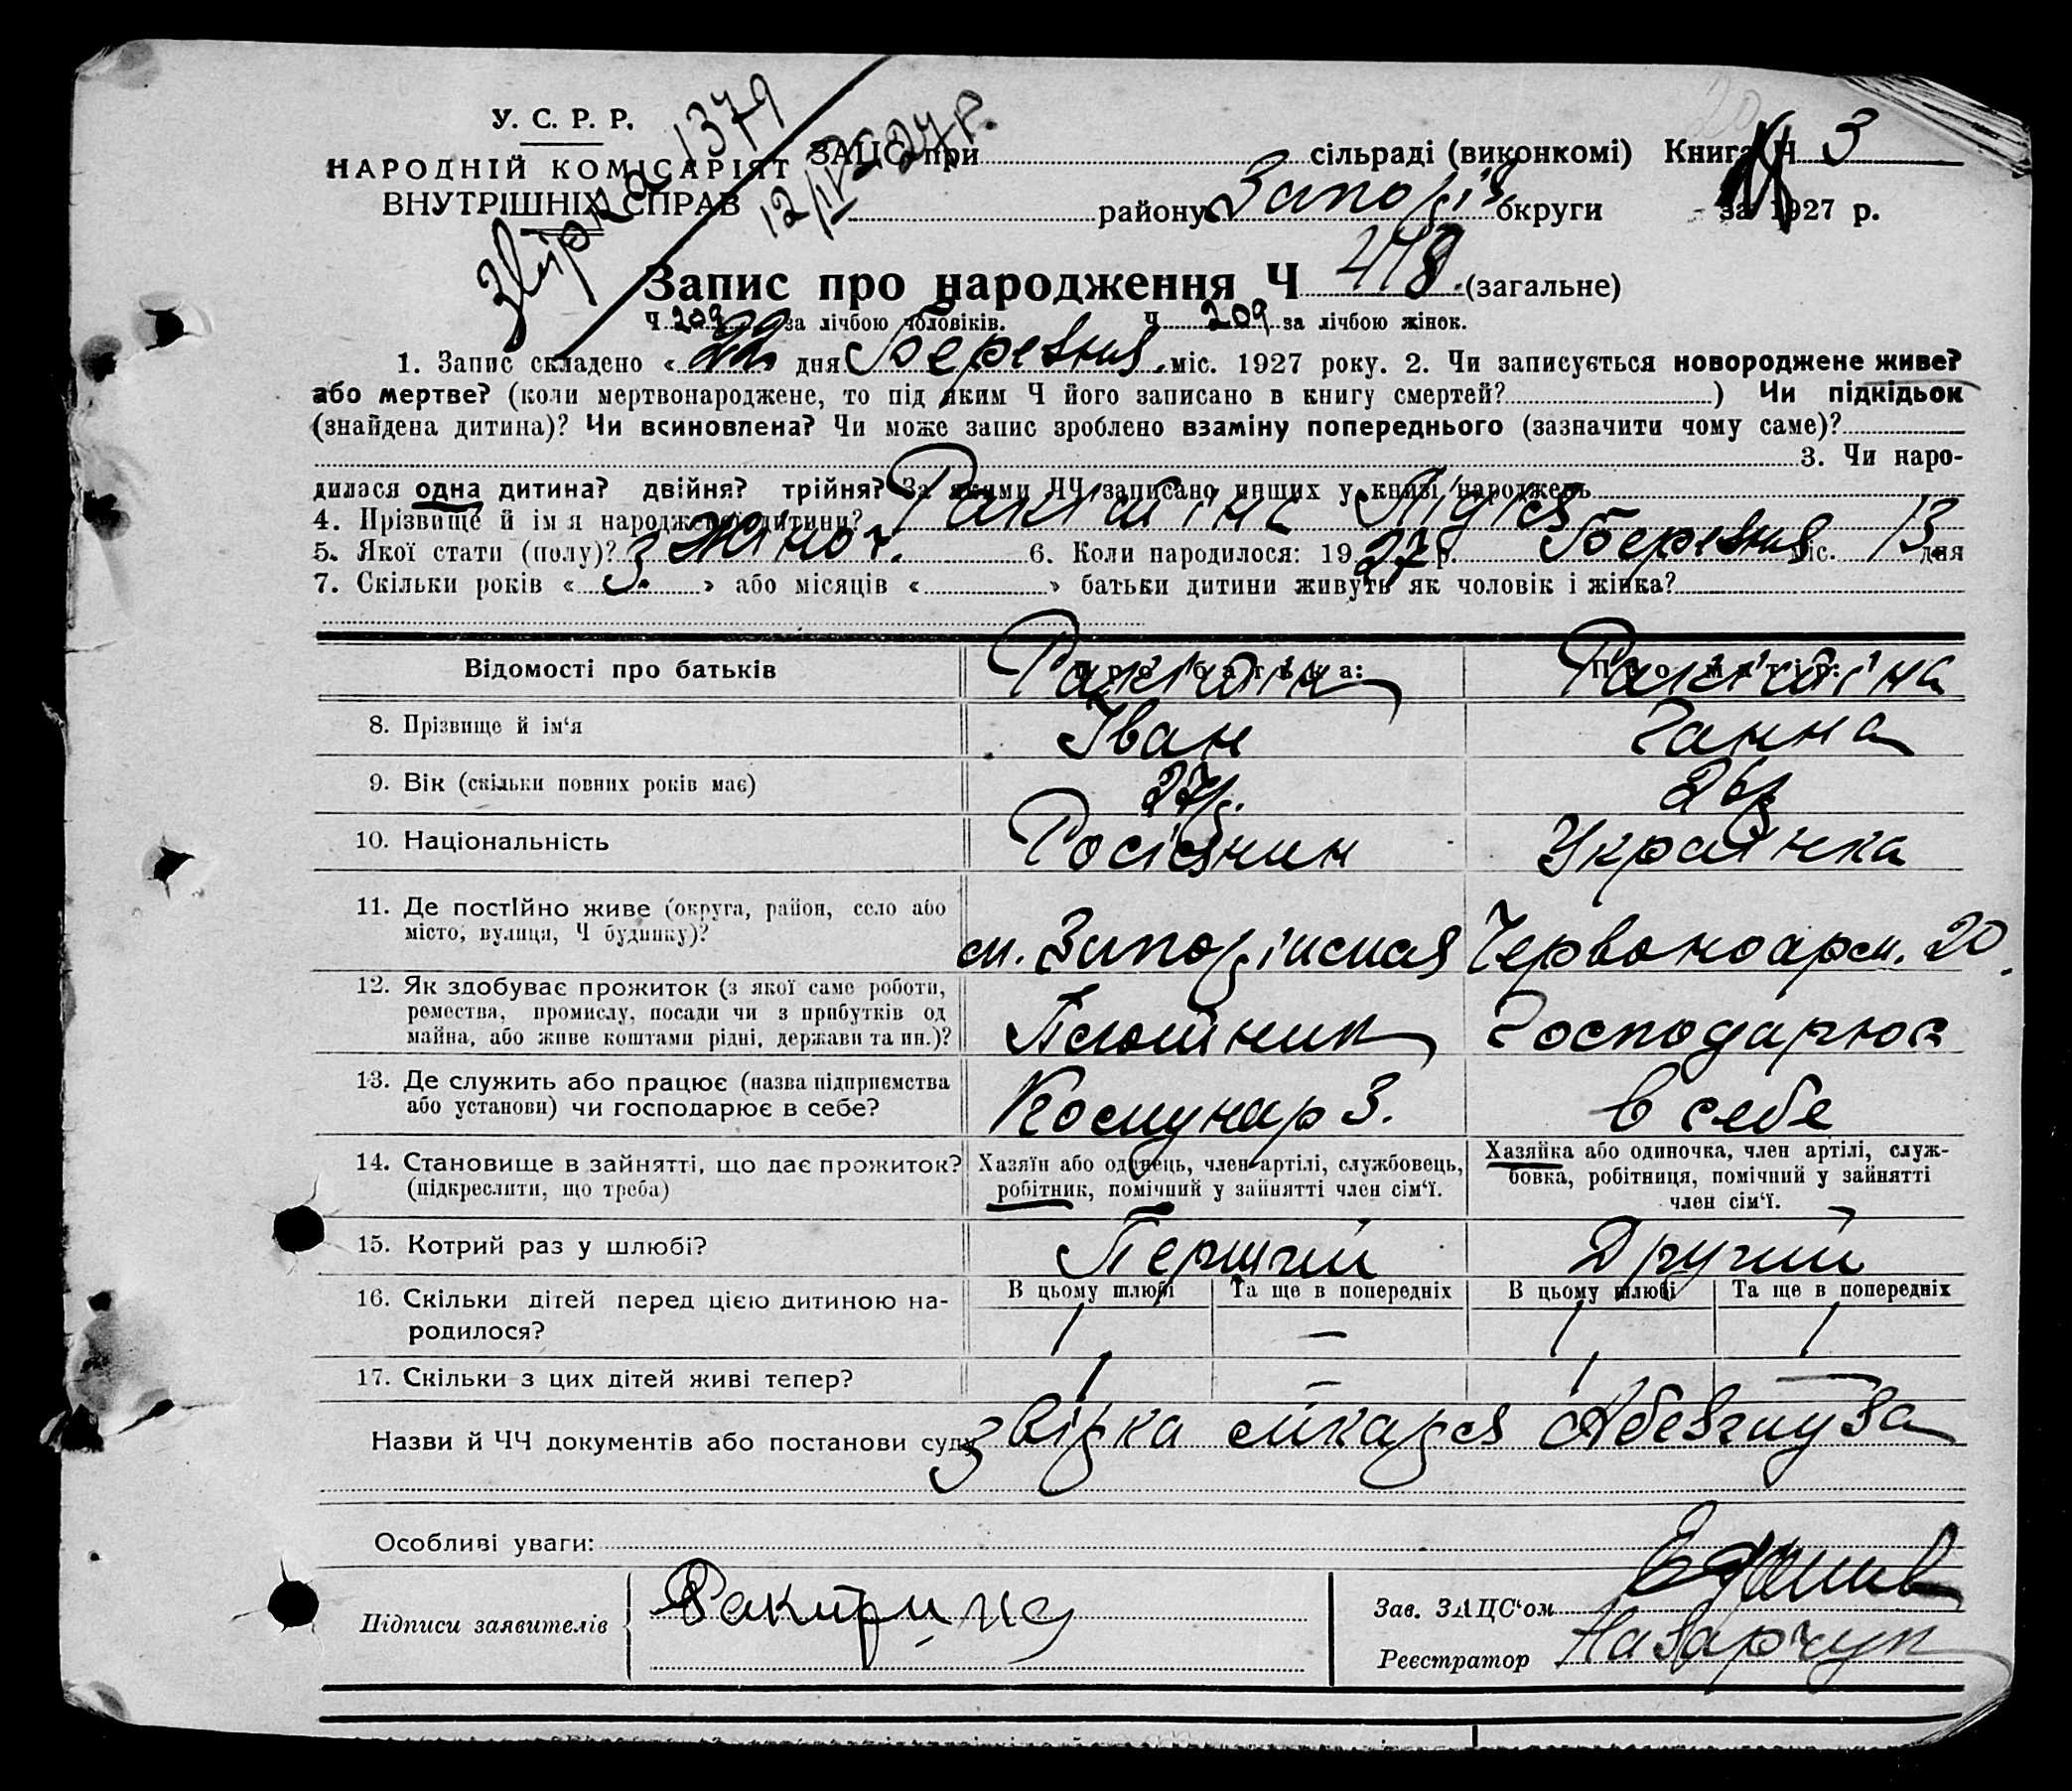 У. С. Р. Р.
НАРОДНІЙ КОМІСАРІЯТ
ВНУТРІШНІХ СПРАВ
Звірка 1379
12/IV 1927 р.
ЗАЦС при сільраді (виконкомі) Книга Ч 3
району Запоріз округи за 1927 р.
Запис про народження Ч 418. (загальне)
Ч 209 за лічбою чоловіків. Ч 209 за лічбою жінок.
1. Запис складено « 22 дня Березня міс. 1927 року. 2. Чи записується новороджене живе?
або мертве? (коли мертвонароджене, то під яким Ч його записано в книгу смертей? ) Чи підкідьок
(знайдена дитина)? Чи всиновлена? Чи може запис зроблено взаміну попереднього (зазначити чому саме)?
3. Чи наро-
дилася одна дитина? двійня? трійня? За якими ЧЧ записано инших у книзі народжень
4. Прізвище й імя народженої дитини? Ракитіна Лідія
5. Якої стати (полу)? жіноч. 6. Коли народилося: 1927 р. Березня міс. 13 дня
7. Скільки років « 3 » або місяців « » батьки дитини живуть як чоловік і жінка?
Відомості про батьків Про батька: Про матір:
8. Прізвище й ім‘я Ракитін Іван Ракитіна Ганна
9. Вік (скільки повних років має) 27 р. 26 р
10. Національність Росіянин Українка
11. Де постійно живе (округа, район, село або
місто, вулиця, Ч будинку)? м. Запоріжжя Червоноарм. 20.
12. Як здобуває прожиток (з якої саме роботи,
ремества, промислу, посади чи з прибутків од
майна, або живе коштами рідні, держави та ин.)? Плотник Господарює
13. Де служить або працює (назва підприємства
або установи) чи господарює в себе? Комунар З. в себе
14. Становище в зайнятті, що дає прожиток?
(підкреслити, що треба)
Хазяїн або одинець, член артілі, службовець,
робітник, помічний у зайнятті член сім‘ї.
Хазяйка або одиночка, член артілі, служ-
бовка, робітниця, помічний у зайнятті
член сім‘ї.
15. Котрий раз у шлюбі? Перший Другий
16. Скільки дітей перед цією дитиною на-
родилося?
В цьому шлюбі Та ще в попередніх В цьому шлюбі Та ще в попередніх
1 — 1 1
17. Скільки з цих дітей живі тепер? 1 — 1 —
Назви й ЧЧ документів або постанови суду звірка лікаря
Особливі уваги:
Підписи заявителів Ракитіна
Зав. ЗАЦС‘ом
Реєстратор Назарчук